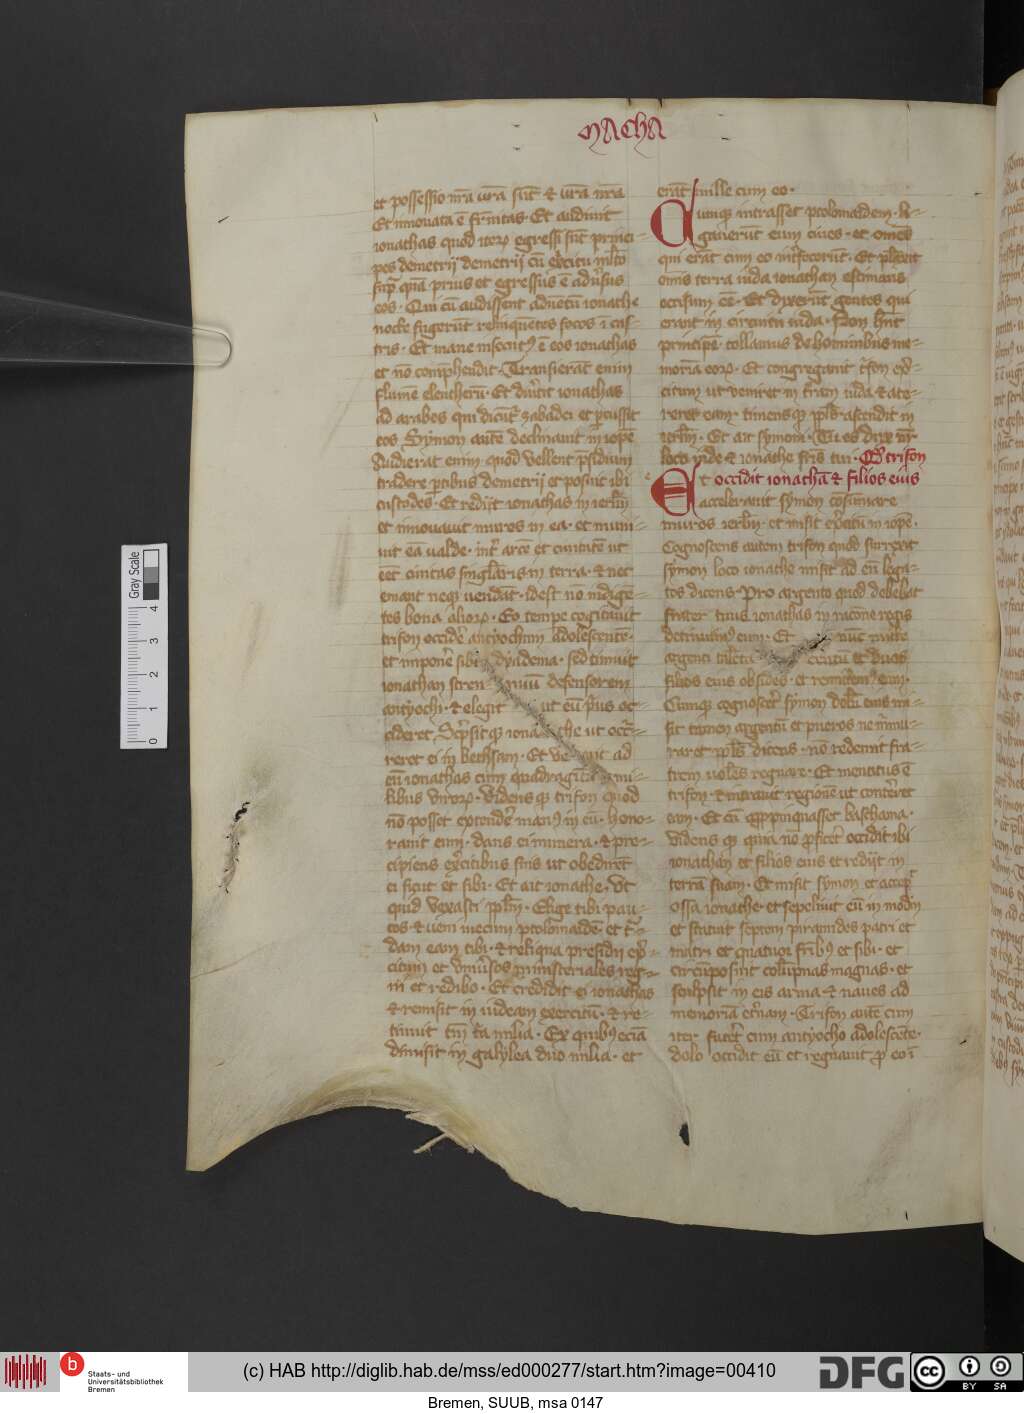 macha
et possessio nr̄a ur̄a sūt ⁊ ur̄a nr̄a
Et innouata ē fr̄nitas. Et audiuit
ionathas quod iteꝝ egressi sūt princi-
pes demetrij demetrij cū exercitu ml̄to
supͣ quā prius et egressus ē adu̾sus
eos. Qui cū audissent aduētū ionathe
nocte fugerūt relinquētes focos ī cas-
tris. Et mane insecutꝰ ē eos ionathas
et nō comprehendit. Transierāt enim
flumē eleutherū. Et diu̾tit ionathas
ad arabes qui dicūt᷑ zabadei et ꝑcussit
eos Symon autē declinauit in iopē
Audierat enim quod vellent p̄sidium
tradere ꝑtibus demetrij et posuit ibi
custodes. Et redijt ionathas in ierl̄m
et innouauit muros in ea. et muni-
uit eā ualde. int̾ arcē et ciuitatē ut
eēt ciuitas singl̄aris in terra. ⁊ nec
emant neqꝫ uendāt. idest nō indige-
tes bona alioꝝ. Eo tempe cogitauit
trifon occidē antyochum adolescente.
et imponē sibi dyadema. sed timuit
ionathan stren- nuū defensorem
antyochi. ⁊ elegit ut eū pͥus oc-
cideret. Sc̾psit qꝫ iona the ut occr̄-
reret ei in bethsam. Et ve nit ad
eū ionathas cum quadraginta mi-
libus viroꝝ. Videns qꝫ trifon quod
nō posset extendē manꝰ in eū. hono-
rauit eum. dans ei munera. ⁊ pre-
cipiens exercitibus suis ut obedirēt
ei sicut et sibi. Et ait ionathe. Vt
quid vexasti ppl̄m. Elige tibi pau-
cos ⁊ ueni mecum ptolomaidē et tͣ-
dam eam tibi. ⁊ reliqua presidii exer-
citum et vniu̾sos ministeriales reg-
ni et redibo. Et credidit ei ionathas
⁊ remisit in iudeam exercitū. ⁊ re-
tinuit tm̄ tͥa milia. Ex quibꝰ eciā
dimisit in galylea duo milia. et
erāt mille cum eo.
Cumqꝫ intrasset ptolomaidem. li-
gauerūt eum ciues. et omēs
qui erāt cum eo int̾fecerūt. Et plāxit
om̄is terra iuda ionathan estimans
occisum eē. Et dixerūt gentes qui
erant in circuitu iuda. Non hn̄t
principē tollamus de hominibus me-
moriā eoꝝ. Et congregauit tͥfon ex̾-
citum ut veniret in tr̄am iuda ⁊ ate-
reret eam. timens qꝫ ppl̄s ascendit in
ierl̄m. Et ait symoni. Tu es dux nr̄
loco iude ⁊ ionathe fr̄is tui. Qd̾ trifon
Et occidit ionathā ⁊ filios eius
accelerauit symon cōsummare
muros ierl̄m. et misit exercitū in iopē.
Cognoscens autem trifon quod surrexit
symon loco ionathe misit ad eū lega-
tos dicens. Pro argento quod debebat
frater tuus ionathas in racōne regis
detinuimꝰ eum. Et nūc mitte
argenti talenta centū et duos
filios eius obsides. et remittemꝰ eum.
Cumqꝫ cognoscet̾ symon dolū eius mi-
sit tamen argentū et pueros ne īimu-
raret ppl̄s dicens. nō redemit fra-
trem uolēs regnare. Et mentitus ē
trifon. ⁊ intrauit regionē ut contēret
eam. Et cū appropinquasset baschama.
Videns qꝫ quia nō ꝓficet̾ occidit ibi
ionathan et filios eius et redijt in
terrā suam. Et misit symon et accepͥ
ossa ionathe. et sepeliuit eū in modin
et statuit septem piramides patri et
matri et quatuor fr̄ibꝰ et sibi. et
circūposuit colūpnas magnas. et
sculpsit in eis arma ⁊ naues ad
memoriā et̾nam. Trifon autē cum
iter facet̾ cum antyocho adolescēte.
dolo occidit eū et regnauit ꝑ eo ī
Gray Scale
0 1 2 3 4
b
Staats- und
Universitätsbibliothek
Bremen
(c) HAB http://diglib.hab.de/mss/ed000277/start.htm?image=00410
DFG
cc BY SA
Bremen, SUUB, msa 0147